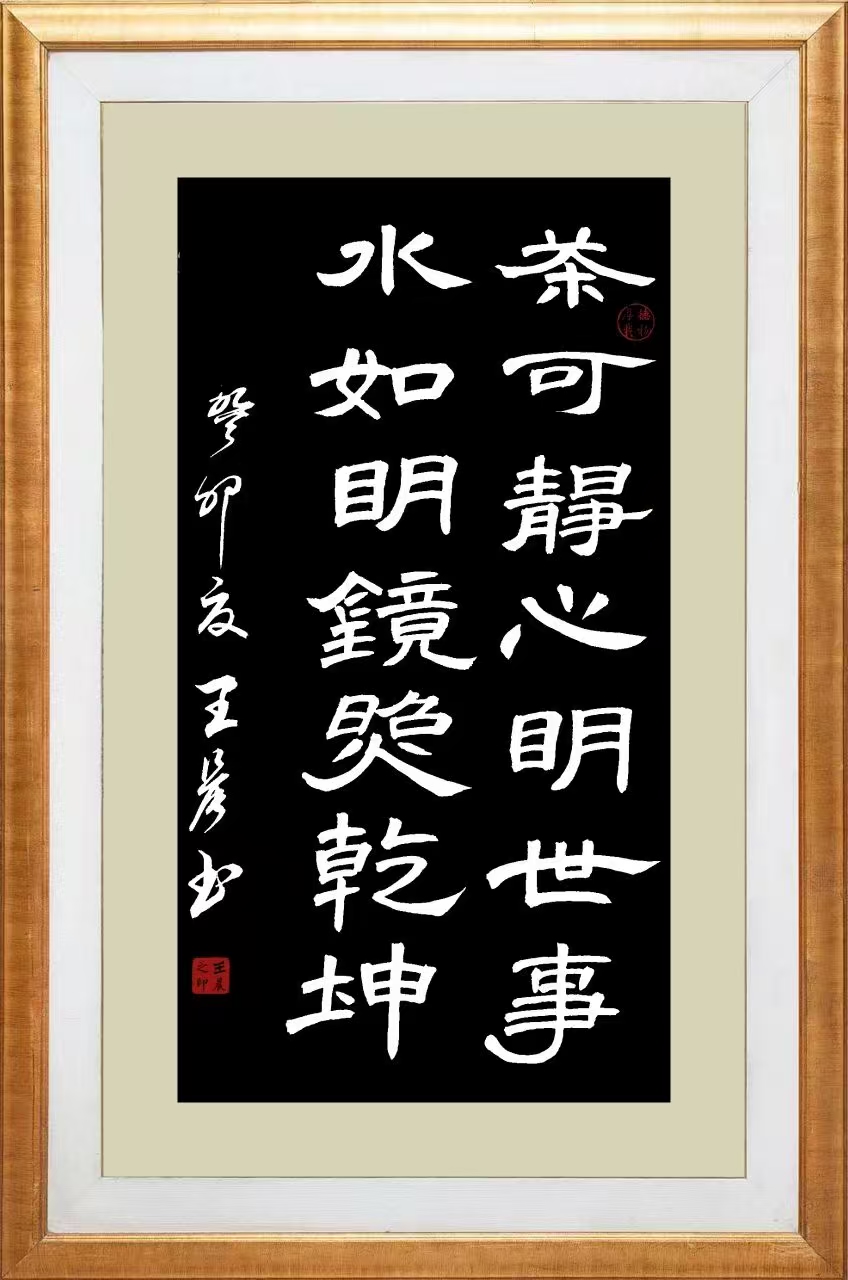 茶可靜心明世事
水如明鏡照乾坤
癸卯夏王晨书
王晨之印